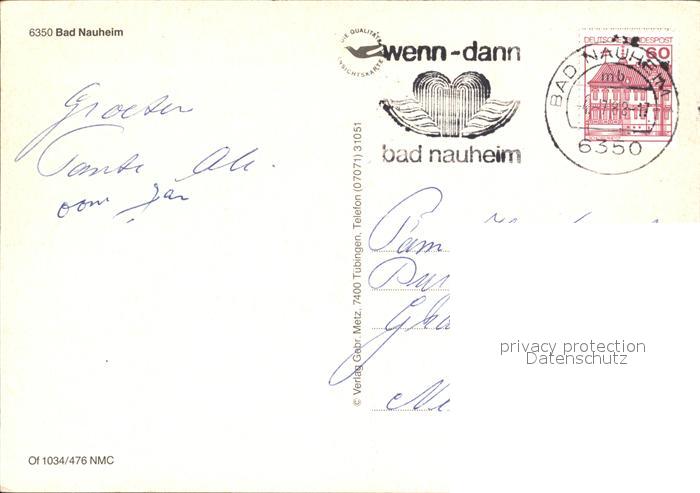 6350 Bad Nauheim
DIE QUALITÄTS
ANSICHTSKARTE
wenn-dann
bad nauheim
DEUTSCHE BUNDESPOST
60
BAD NAUHEIM
mb
6350
Groeten
Tante
oom Jan
© Verlag Gebr. Metz, 7400 Tübingen, Telefon (07071) 31051
Fam
privacy protection
Datenschutz
Of 1034/476 NMC